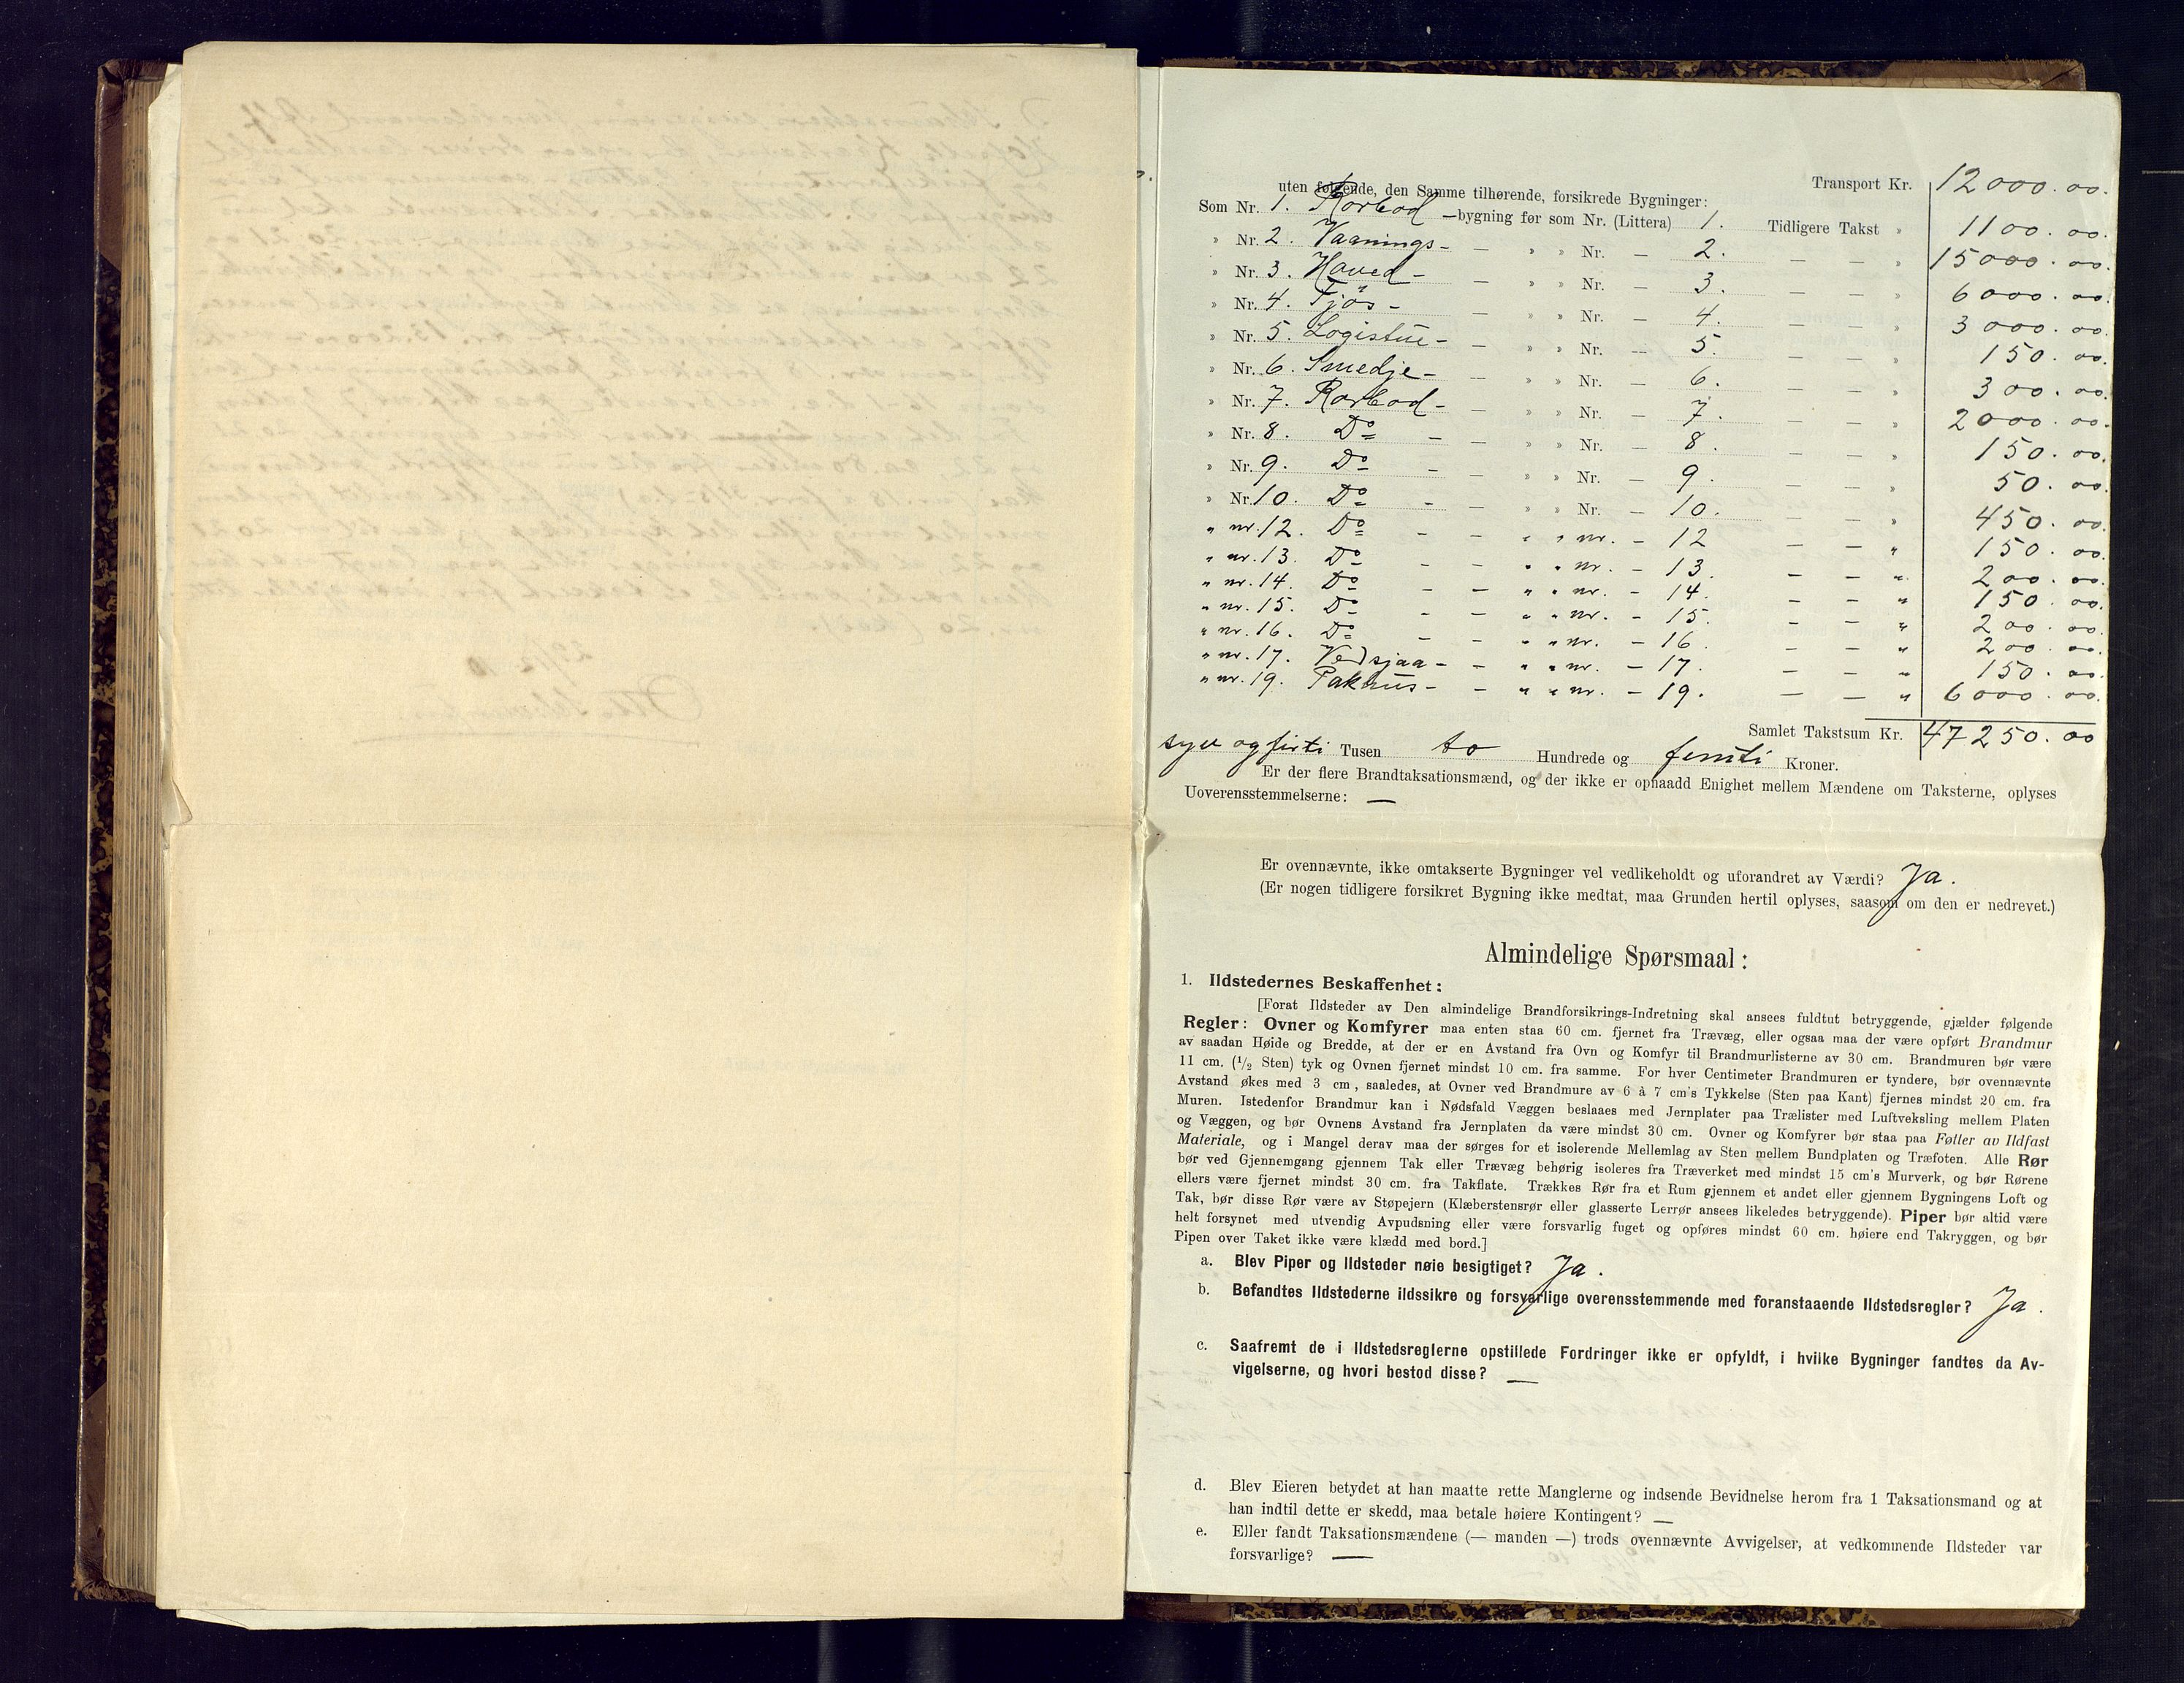 Transport Kr. 12000.00.
uten følgende, den Samme tilhørende, forsikrede Bygninger:
Som Nr. 1. Rorbod -bygning før som Nr. (Littera) 1. Tidligere Takst » 1100.00.
» Nr. 2. Vaanings- — » » Nr. — 2. — — » 15000.00.
» Nr. 3. Hoved- — » » Nr. — 3. — — » 6000.00.
» Nr. 4. Fjøs- — » » Nr. — 4. — — » 3000.00.
» Nr. 5. Logistue- — » » Nr. — 5. — — » 150.00.
» Nr. 6. Smedje- — » » Nr. — 6. — — » 300.00.
» Nr. 7. Rorbod- — » » Nr. — 7. — — » 2000.00.
» Nr. 8. Do - — » » Nr. — 8. — — » 150.00.
» Nr. 9. Do - — » » Nr. — 9. — — » 50.00.
» Nr. 10. Do - — » » Nr. — 10. — — » 450.00.
" nr. 12. Do - - " " nr. - 12 — — " 150.00.
" nr. 13. Do - - " " nr. - 13. — — " 200.00.
" nr. 14. Do - - " " nr. - 14. — — " 150.00.
" nr. 15. Do - - " " nr. - 15. — — " 200.00.
" nr. 16. Do - - " " nr. - 16 — — " 200.00.
" nr. 17. Vedsjaa- - " " nr. - 17. — — " 150.00.
" nr. 19. Pakhus- - " " nr. - 19. — — " 6000.00.
Samlet Takstsum Kr. 47250.00
syv og firti Tusen to Hundrede og femti Kroner.
Er der flere Brandtaksationsmænd, og der ikke er opnaadd Enighet mellem Mændene om Taksterne, oplyses
Uoverensstemmelserne: —
Er ovennævnte, ikke omtakserte Bygninger vel vedlikeholdt og uforandret av Værdi? Ja.
(Er nogen tidligere forsikret Bygning ikke medtat, maa Grunden hertil oplyses, saasom om den er nedrevet.)
Almindelige Spørsmaal:
1. Ildstedernes Beskaffenhet:
[Forat Ildsteder av Den almindelige Brandforsikrings-Indretning skal ansees fuldtut betryggende, gjælder følgende
Regler: Ovner og Komfyrer maa enten staa 60 cm. fjernet fra Trævæg, eller ogsaa maa der være opført Brandmur
av saadan Høide og Bredde, at der er en Avstand fra Ovn og Komfyr til Brandmurlisterne av 30 cm. Brandmuren bør være
11 cm. (1/2 Sten) tyk og Ovnen fjernet mindst 10 cm. fra samme. For hver Centimeter Brandmuren er tyndere, bør ovennævnte
Avstand økes med 3 cm, saaledes, at Ovner ved Brandmure av 6 à 7 cm's Tykkelse (Sten paa Kant) fjernes mindst 20 cm. fra
Muren. Istedenfor Brandmur kan i Nødsfald Væggen beslaaes med Jernplater paa Trælister med Luftveksling mellem Platen
og Væggen, og bør Ovnens Avstand fra Jernplaten da være mindst 30 cm. Ovner og Komfyrer bør staa paa Føtter av Ildfast
Materiale, og i Mangel derav maa der sørges for et isolerende Mellemlag av Sten mellem Bundplaten og Træfoten. Alle Rør
bør ved Gjennemgang gjennem Tak eller Trævæg behørig isoleres fra Træverket med mindst 15 cm's Murverk, og bør Rørene
ellers være fjernet mindst 30 cm. fra Takflate. Trækkes Rør fra et Rum gjennem et andet eller gjennem Bygningens Loft og
Tak, bør disse Rør være av Støpejern (Klæberstensrør eller glasserte Lerrør ansees likeledes betryggende). Piper bør altid være
helt forsynet med utvendig Avpudsning eller være forsvarlig fuget og opføres mindst 60 cm. høiere end Takryggen, og bør
Pipen over Taket ikke være klædd med bord.]
a. Blev Piper og Ildsteder nøie besigtiget? Ja.
b. Befandtes Ildstederne ildssikre og forsvarlige overensstemmende med foranstaaende Ildstedsregler? Ja.
c. Saafremt de i Ildstedsreglerne opstillede Fordringer ikke er opfyldt, i hvilke Bygninger fandtes da Av-
vigelserne, og hvori bestod disse? —
d. Blev Eieren betydet at han maatte rette Manglerne og indsende Bevidnelse herom fra 1 Taksationsmand og at
han indtil dette er skedd, maa betale høiere Kontingent? —
e. Eller fandt Taksationsmændene (— manden —) trods ovennævnte Avvigelser, at vedkommende Ildsteder var
forsvarlige? —